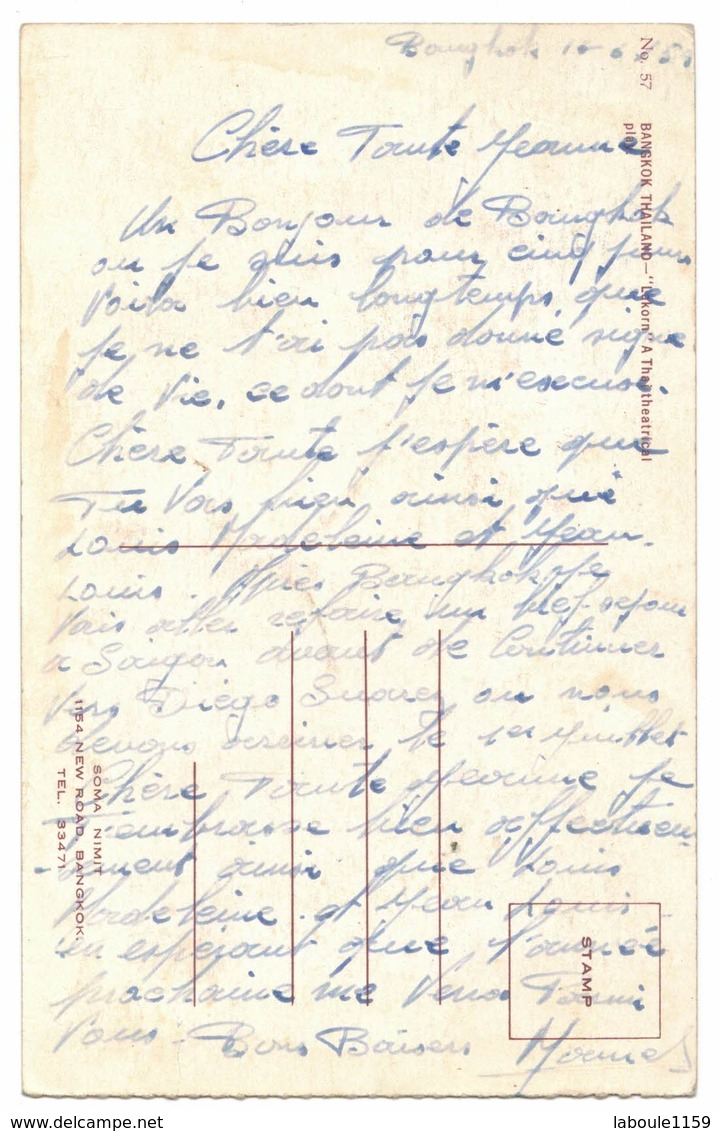 Bangkok 10
Chère Tante Jeanne
Un Bonjour de Bangkok
ou je suis pour cinq jours
Voila bien longtemps, que
je ne t'ai pas donné signe
de Vie, ce dont je m'excuse.
Chère Tante j'espère que
Tu Vas bien, ainsi que
Louis Madeleine et Jean-
Louis. Après Bangkok je
Vais aller refaire un bref sejour
a Saigon avant de Continuer
vers Diégo Suarez ou nous
devons arriver le 1er Juillet
Chère Tante Jeanne je
T'embrasse bien affectueu-
-sement ainsi que Louis
Madeleine et Jean Louis
en espérant que l'année
prochaine me Verra Parmi
Vous - Bons Baisers
No. 57 BANGKOK THAILAND—"Lakorn" A Thai theatrical
SOMA NIMIT
1154 NEW ROAD BANGKOK.
TEL. 33471
STAMP
laboule1159